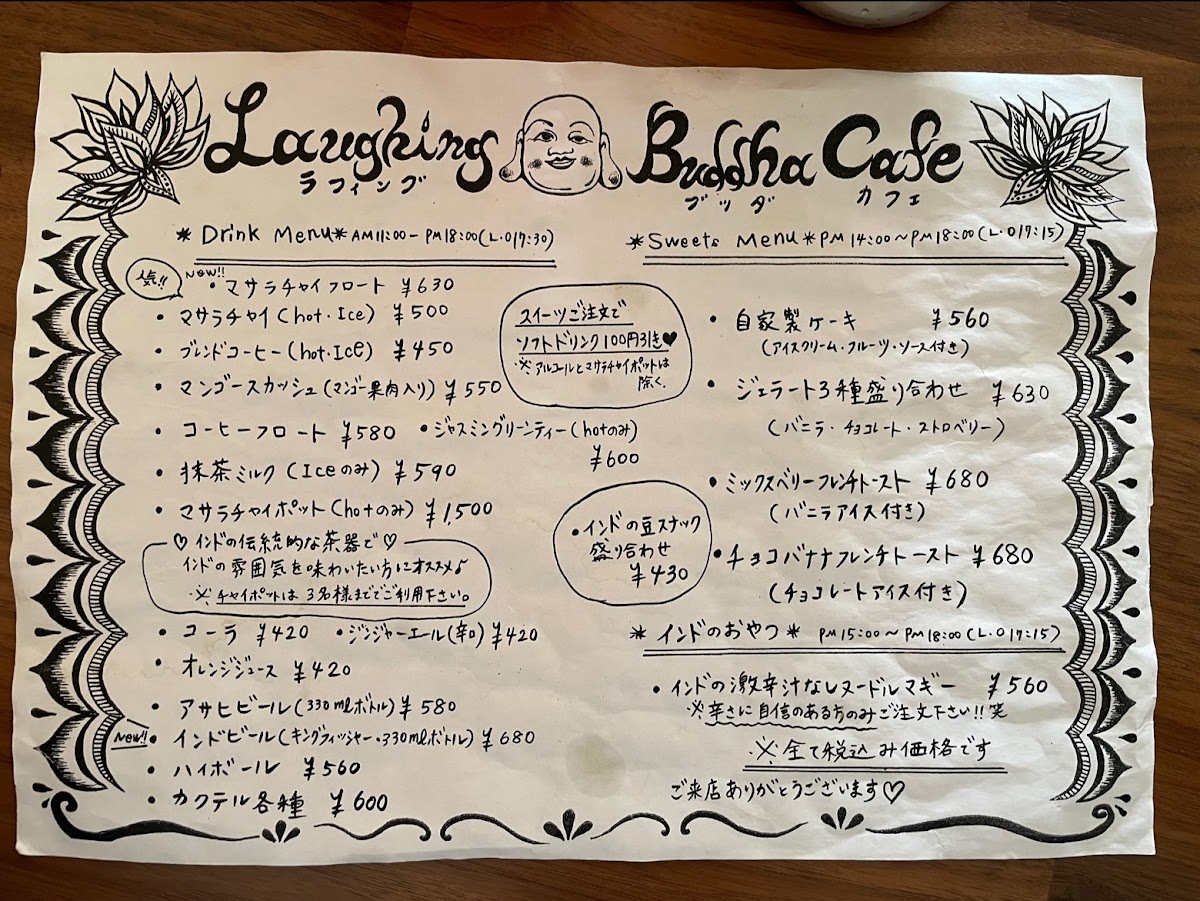 Laughing Buddha Cafe
ラフィング ブッダ カフェ
* Drink Menu * AM11:00 - PM18:00 (L・O 17:30)
人気!!
New!!
・マサラチャイフロート ¥630
・マサラチャイ (hot・Ice) ¥500
・ブレンドコーヒー (hot・Ice) ¥450
・マンゴースカッシュ (マンゴー果肉入り) ¥550
・コーヒーフロート ¥580
・ジャスミングリーンティー (hotのみ)
¥600
・抹茶ミルク (Iceのみ) ¥590
・マサラチャイポット (hotのみ) ¥1,500
♡インドの伝統的な茶器で♡
インドの雰囲気を味わいたい方にオススメ♪
※チャイポットは3名様まででご利用下さい。
・コーラ ¥420 ・ジンジャーエール(辛口) ¥420
・オレンジジュース ¥420
・アサヒビール (330mlボトル) ¥580
New!!
・インドビール (キングフィッシャー・330mlボトル) ¥680
・ハイボール ¥560
・カクテル各種 ¥600
スイーツご注文で
ソフトドリンク100円引き♥
※アルコールとマサラチャイポットは
除く。
・インドの豆スナック
盛り合わせ
¥430
* Sweets Menu * PM14:00〜PM18:00 (L・O 17:15)
・自家製ケーキ ¥560
(アイスクリーム・フルーツ・ソース付き)
・ジェラート3種盛り合わせ ¥630
(バニラ・チョコレート・ストロベリー)
・ミックスベリーフレンチトースト ¥680
(バニラアイス付き)
・チョコバナナフレンチトースト ¥680
(チョコレートアイス付き)
* インドのおやつ * PM15:00〜PM18:00 (L・O 17:15)
・インドの激辛汁なしヌードルマギー ¥560
※辛さに自信のある方のみご注文下さい!!笑
※全て税込み価格です
ご来店ありがとうございます♡